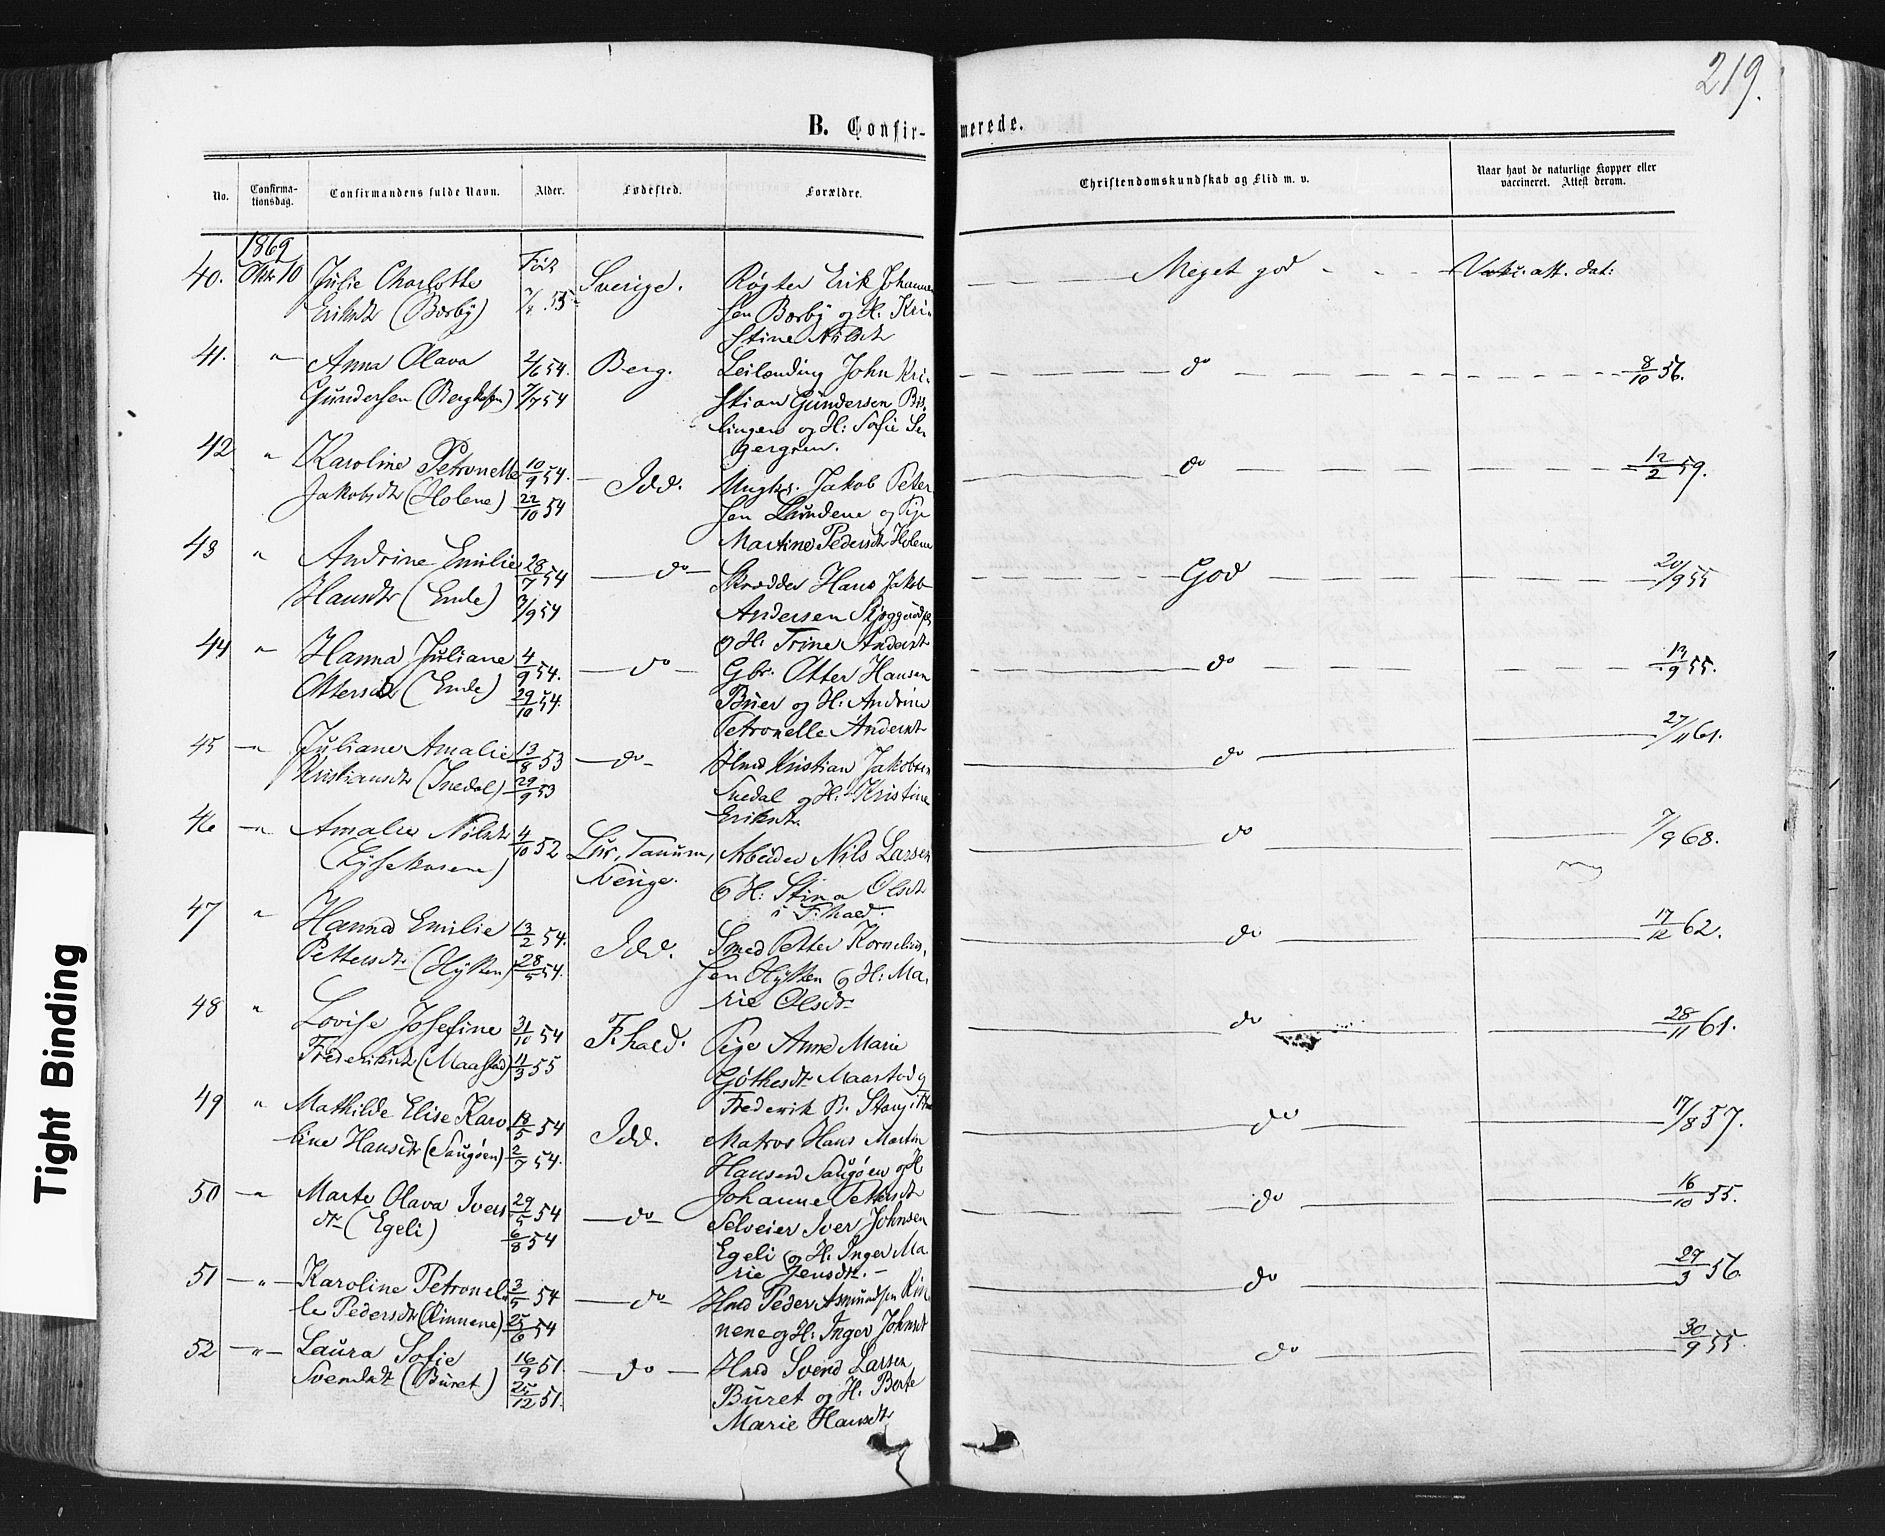 219.
B. Confir-
merede.
No.
Confirma-
tionsdag.
Confirmandens fulde Navn.
Alder.
Fødested.
Forældre.
Christendomskundskab og Flid m. v.
Naar havt de naturlige Kopper eller
vaccineret. Attest derom.
1869
40. Oktr 10 Julie Charlotte Født Sverige. Røgter Erik Johannes
Eriksdtr (Bærby) 7/4 55 sen Bærby og H. Kri-
stine Nilsdtr
Meget god Vakc. att. dat:
41. " Anna Olava 2/6 54. Berg. Leilænding John Kri-
Gundersen (Bergksen) 7/7 54 stian Gundersen Bis-
lingen og H: Sofie Se-
gergren.
do 8/10 56.
42 " Karoline Petronelle 10/9 54. Idd. Ungkr. Jakob Peter
Jakobsdtr (Holene) 22/10 54 sen Lundene og Pige
Martine Pedersdtr Holene
do 12/2 59.
43 " Andrine Emilie 28/7 54 do Skrædder Hans Jakob
Hansdtr (Ende) 3/9 54 Andersen
og H: Trine Andersdtr
God 20/9 55
44 " Hanna Juliane 4/9 54. do Gbr. Otter Hansen
Ottersdtr (Ende) 29/10 54. Buer og H: Andrine
Petronelle Andersdtr
do 13/9 55.
45 " Juliane Amalie 13/8 53 do Hmd Kristian Jakobsen
Kristiansdtr (Snedal) 29/9 53 Snedal og H: Kristine
Eriksdtr.
do 27/11 61.
46 " Amalie Nilsdtr 4/10 52 Lur, Tanum, Arbeider Nils Larsen
Sverige. og H: Stina Olsdtr
i F:hald.
do 7/9 68.
47 " Hanna Emilie 13/2 54. Idd. Smed Petter Kornelius-
Pettersdtr (Hysten) 28/5 54. sen Hysten og H: Ma-
rie Olsdtr
do 17/12 62.
48 " Lovise Josefine 31/10 54 F:hald. Pige Anne Marie
Frederiksdtr (Maastad) 11/3 55 Göthesdtr Maastad og
Frederik B. Stang i
do 28/11 61.
49 " Mathilde Elise Karo 18/5 54 Idd. Matros Hans Martin
line Hansdtr (Saugøen) 2/7 54. Hansen Saugøen og H.
Johanne Pettersdtr
do 17/8 57.
50 " Marte Olava Ivers 29/5 54 do Selveier Iver Johnsen
dtr (Egeli) 6/8 54 Egeli og H. Inger Ma-
rie Jensdtr.
do 16/10 55.
51 " Karoline Petronel- 3/5 54 do Hmd Peder Asmundsen Rin-
le Pedersdtr (Rinnene) 25/6 54 nene og H: Inger Johnsdtr
do 29/3 56.
52 " Laura Sofie 16/9 51. do Hmd Svend Larsen
Svendsdtr (Buret) 25/12 51. Buret og H. Berte
Marie Hansdtr
do 30/9 55.
Tight Binding